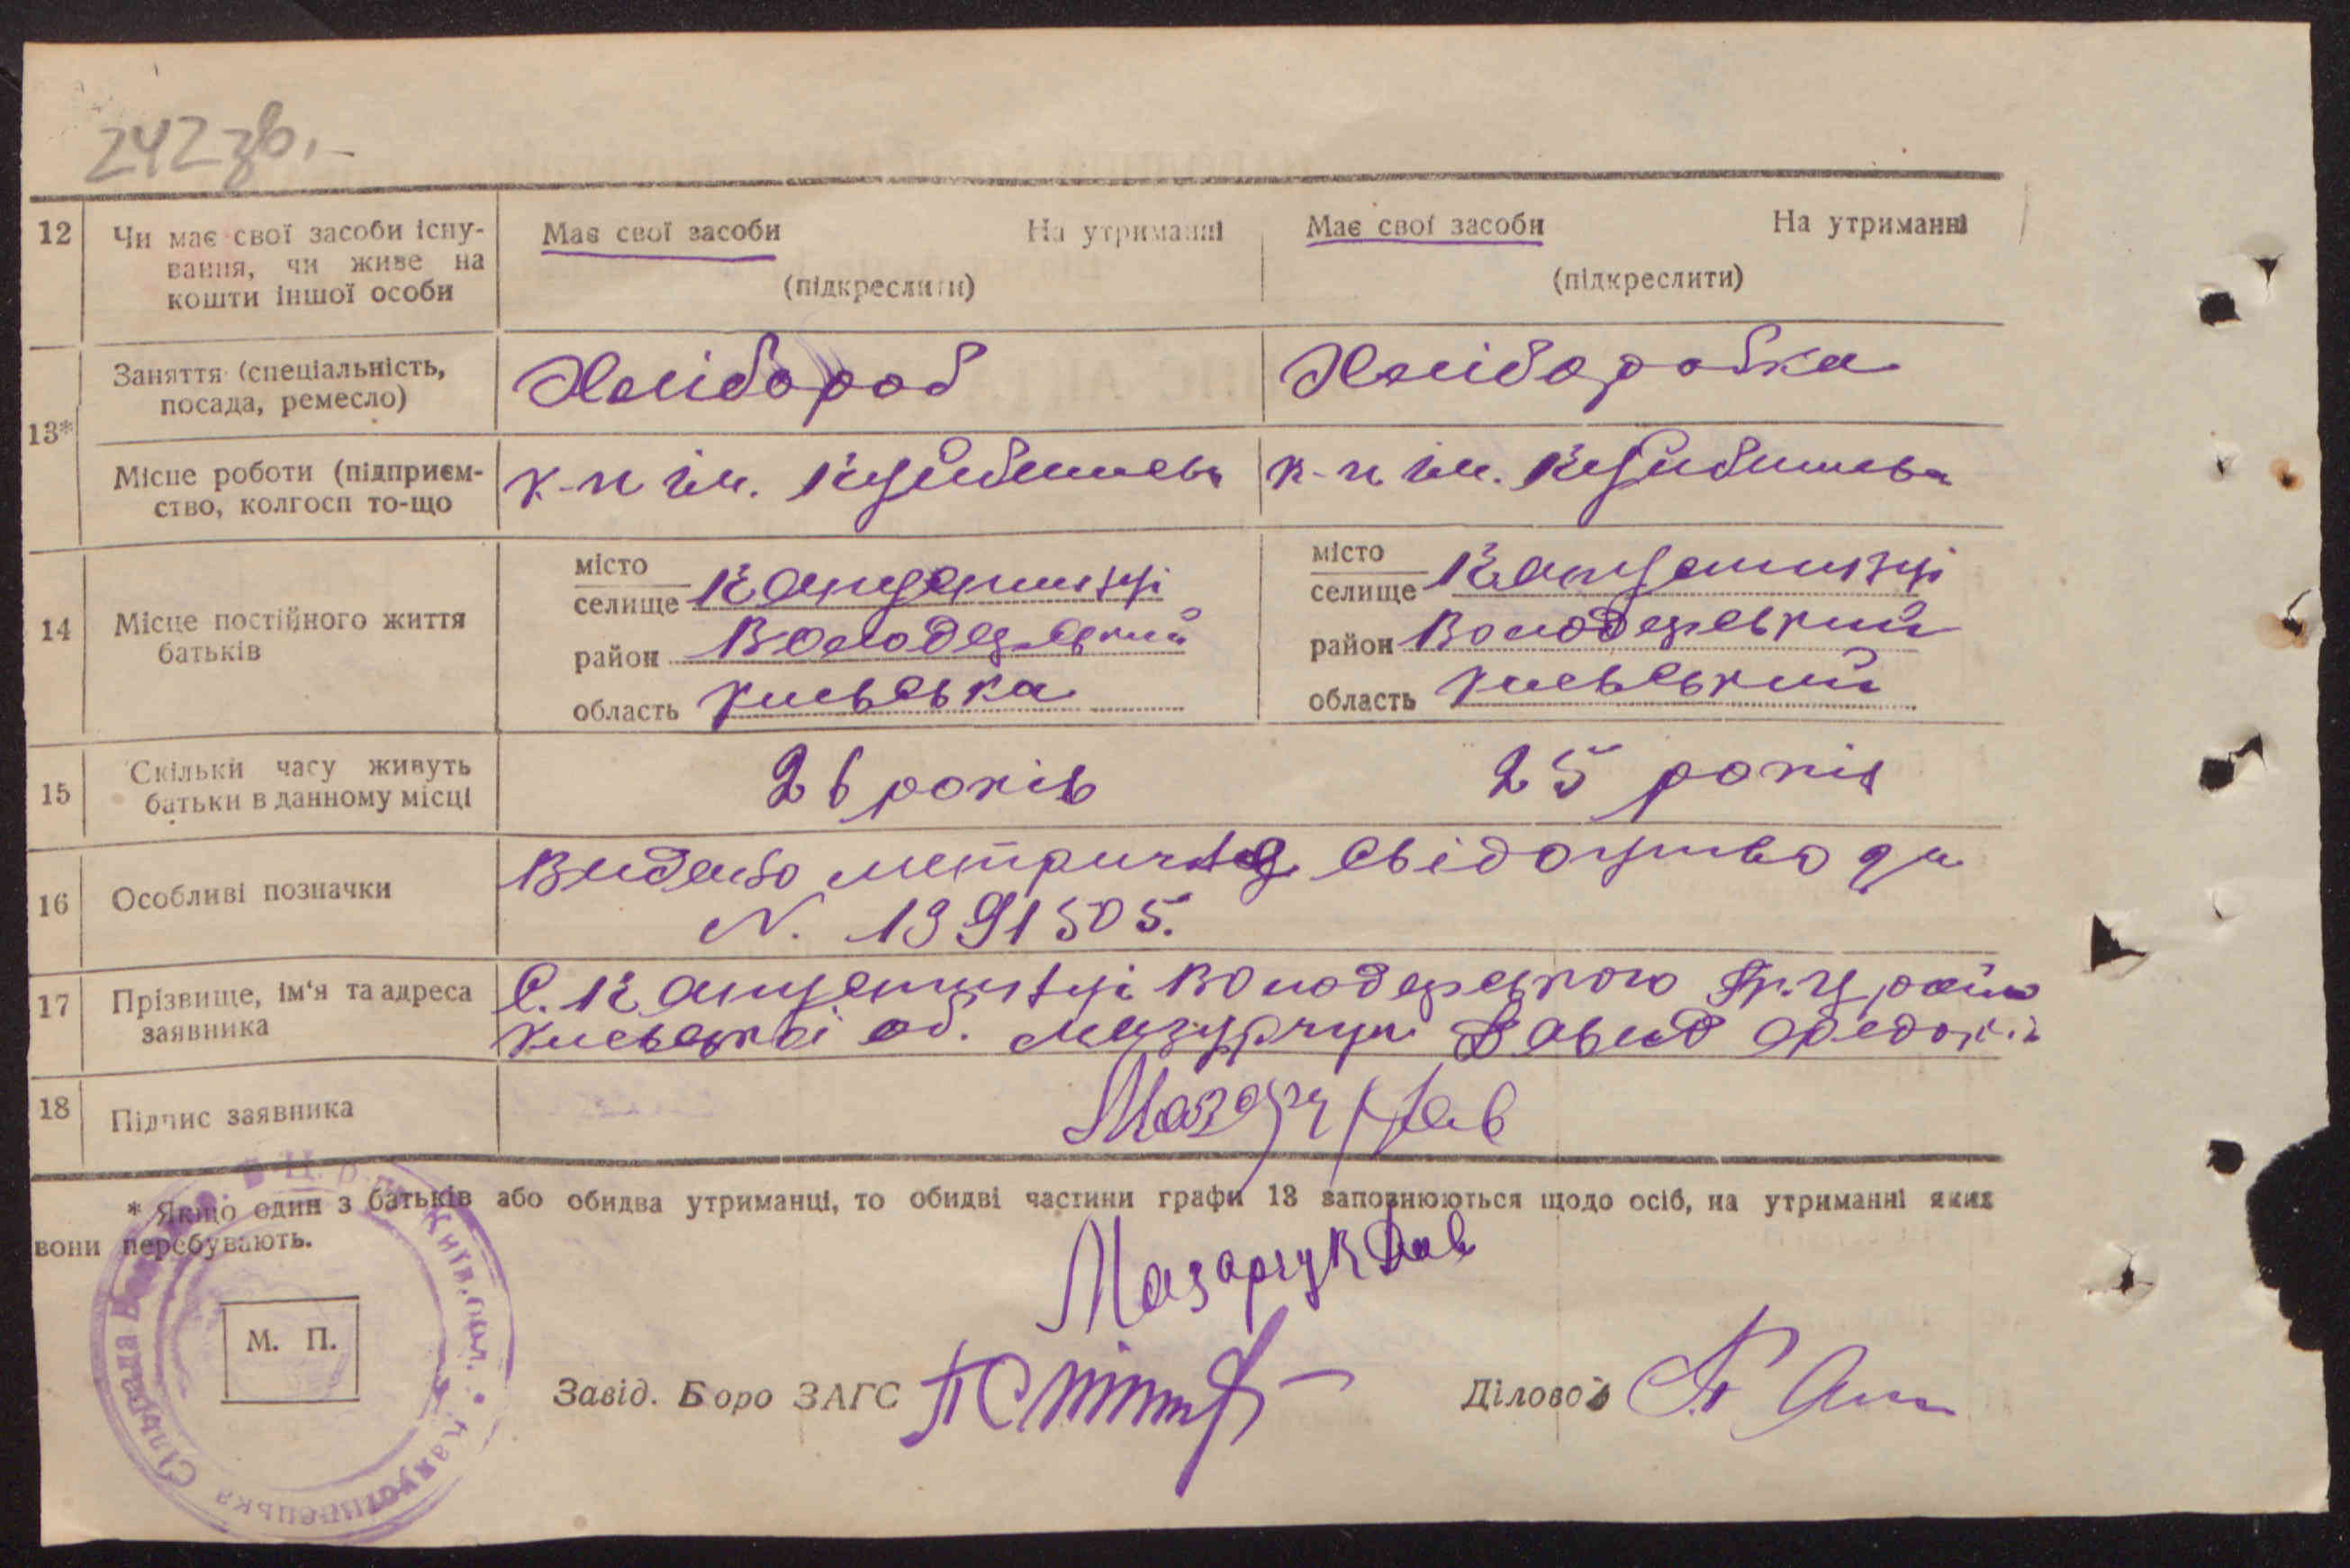 242 зв.
12 Чи має свої засоби існу- Має свої засоби На утриманні Має свої засоби На утриманні
вання, чи живе на (підкреслити) (підкреслити)
кошти іншої особи
13* Заняття (спеціальність, Хлібороб Хліборобка
посада, ремесло)
Місце роботи (підприєм- к-п ім. Куйбишева к-п ім. Куйбишева
ство, колгосп то-що
14 Місце постійного життя батьків
місто
селище Капустинці
район Володарський
область Київська
місто
селище Капустинці
район Володарський
область Київський
15 Скільки часу живуть 26 років 25 років
батьки в данному місці
16 Особливі позначки Видано метричне свідоцтво за
N. 1391505.
17 Прізвище, ім'я та адреса С. Капустинці Володарського району
заявника Київської об. Мазурчук Давид
18 Підпис заявника Мазурч Дав
* Якщо один з батьків або обидва утриманці, то обидві частини графи 13 заповнюються щодо осіб, на утриманні яких
вони перебувають.
Мазарчук Дав
М. П.
Завід. Боро ЗАГС
Діловод
Сільрада Київ. обл.